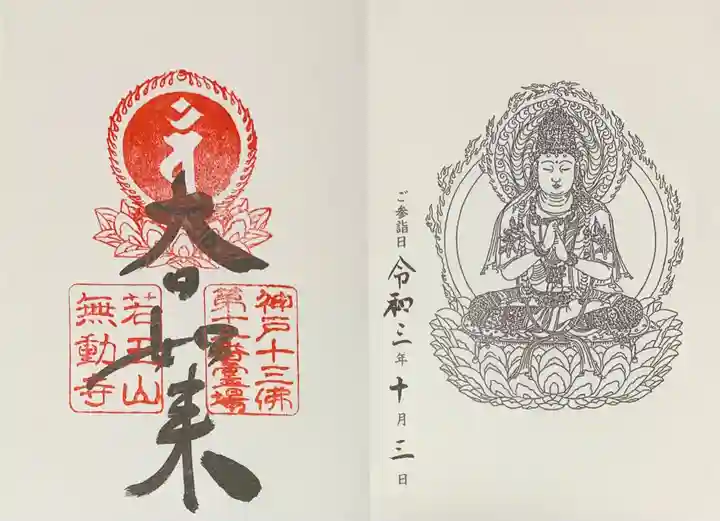 ご参詣日 令和三年十月三日
神戸十三佛
第十二番靈場
大日如来
若王山
無動寺